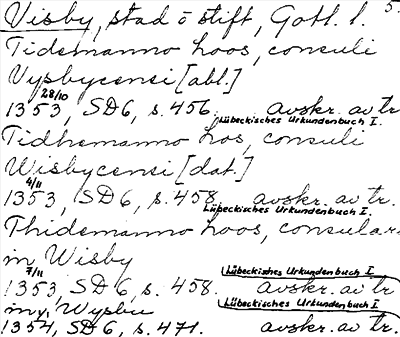 Visby, stad o stift, Gotl. l. 5.
Tidemanno hoos, consuli
Vysbycensi [abl.]
28/10
1353, SD 6, s. 456. avskr. av tr.
Lübeckisches Urkundenbuch I.
Tidhemanno hos, consuli
Wisbycensi [dat.]
4/11
1353, SD 6, s. 458. avskr. av tr.
Lübeckisches Urkundenbuch I.
Thidemanno hoos, consulari
in Wisby
7/11 Lübeckisches Urkundenbuch I.
1353, SD 6, s. 458. avskr. av tr.
Wysbu Lübeckisches Urkundenbuch I.
1354, SD 6, s. 471. avskr. av tr.